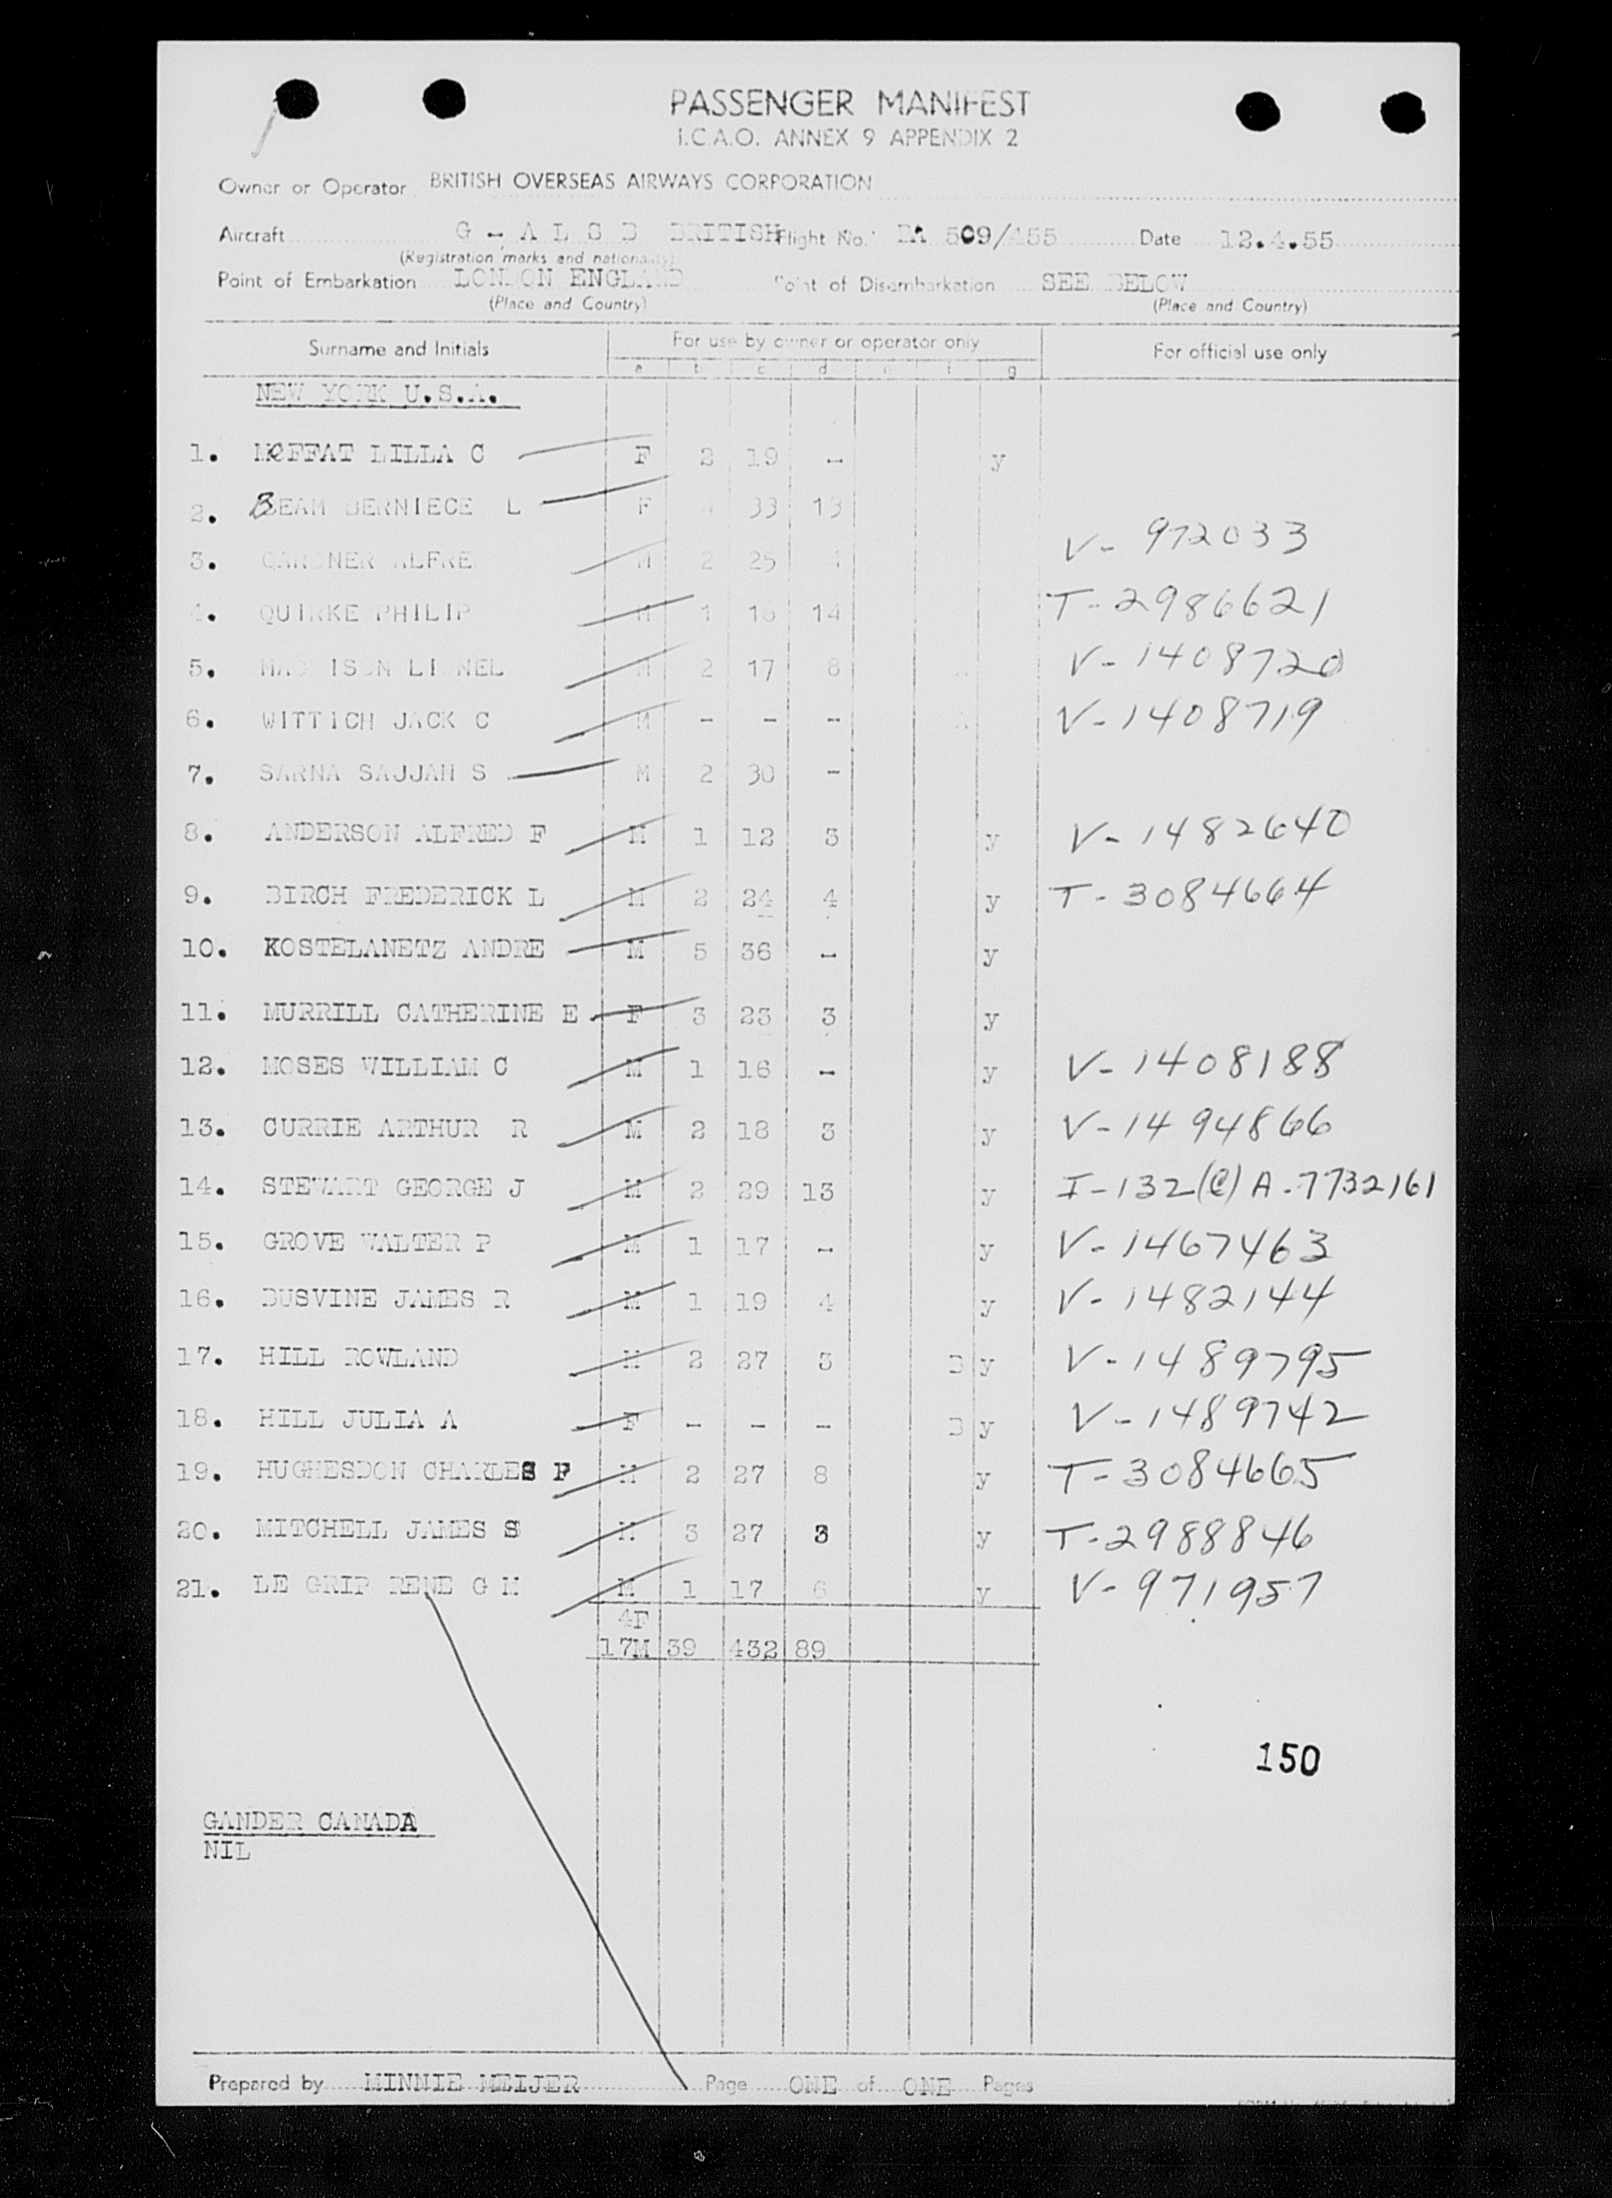 PASSENGER MANIFEST
I.C.A.O. ANNEX 9 APPENDIX 2
Owner or Operator BRITISH OVERSEAS AIRWAYS CORPORATION
Aircraft G - A L S D BRITISH Flight No. BA 509/155 Date 12.4.55
(Registration marks and nationality)
Point of Embarkation LONDON ENGLAND Point of Disembarkation SEE BELOW
(Place and Country) (Place and Country)
Surname and Initials For use by owner or operator only For official use only
a b c d e f g
NEW YORK U.S.A.
1. MOFFAT LILLA C F 2 19 - y
2. BEAM BERNIECE L F 33 13
3. GARDNER ALFRE M 2 25 V- 972033
4. QUIRKE PHILIP M 1 18 14 T-2986621
5. MADDISON LIONEL M 2 17 8 V-1408720
6. WITTICH JACK C M - - - V-1408719
7. SARNA SAJJAN S M 2 30 -
8. ANDERSON ALFRED F M 1 12 3 y V-1482640
9. BIRCH FREDERICK L M 2 24 4 y T-3084664
10. KOSTELANETZ ANDRE M 5 36 - y
11. MURRILL CATHERINE E F 3 23 3 y
12. MOSES WILLIAM C M 1 16 - y V-1408188
13. CURRIE ARTHUR R M 2 18 3 y V-1494866
14. STEWART GEORGE J M 2 29 13 y I-132(C) A-7732161
15. GROVE WALTER P M 1 17 - y V-1467463
16. BUSVINE JAMES R M 1 19 4 y V-1482144
17. HILL ROWLAND M 2 27 3 B y V-1489795
18. HILL JULIA A F - - - B y V-1489742
19. HUGHESDON CHARLES F M 2 27 8 y T-3084665
20. MITCHELL JAMES S M 3 27 3 y T-2988846
21. LE GRIP RENE G M M 1 17 6 y V-971957
4F
17M 39 432 89
150
GANDER CANADA
NIL
Prepared by MINNIE MEIJER Page ONE of ONE Pages